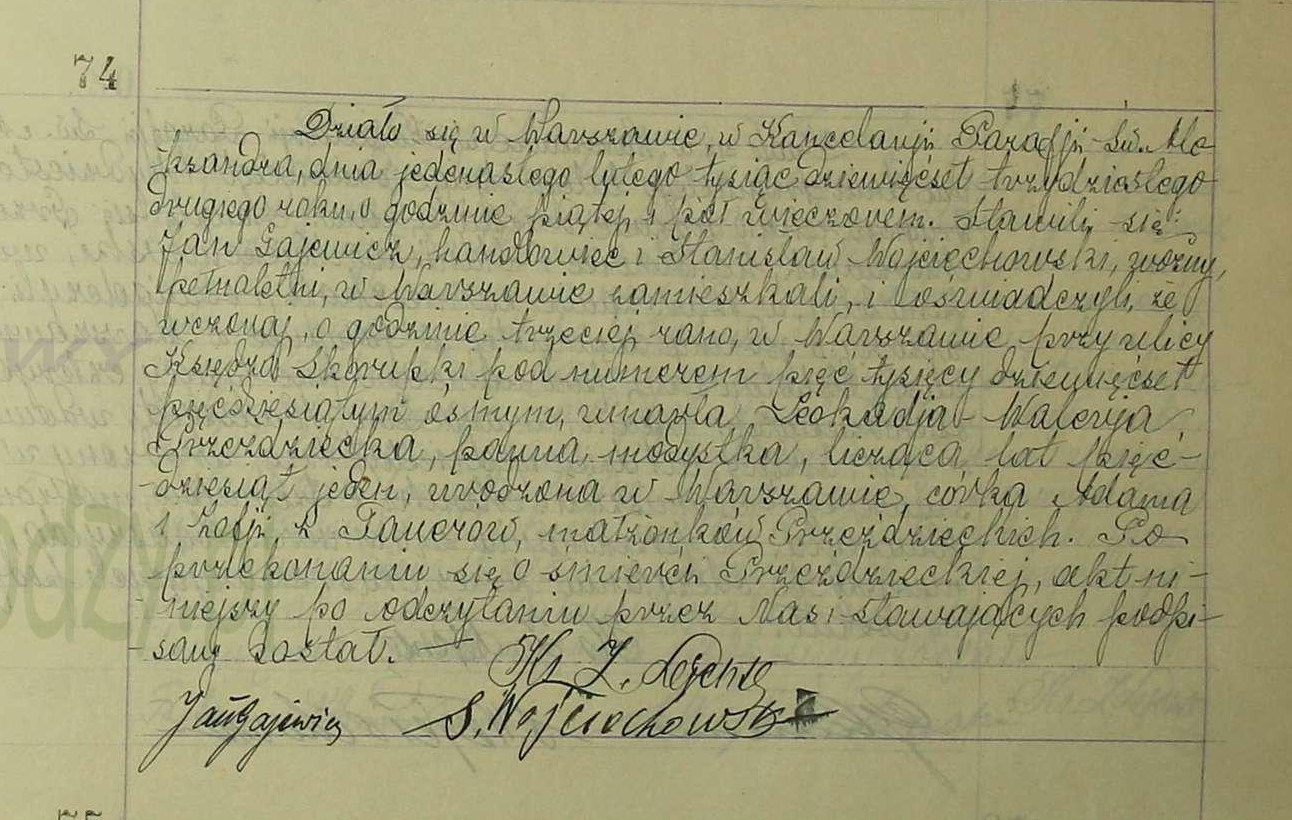 74
Działo się w Warszawie, w Kancelarji Parafji Św. Ale
ksandra, dnia jedenastego lutego tysiąc dziewięćset trzydziestego
drugiego roku, o godzinie piątej i pół wieczorem. Stawili się:
Jan Gajewicz, handlowiec i Stanisław Wojciechowski, woźny,
pełnoletni, w Warszawie zamieszkali, i oświadczyli, że
wczoraj, o godzinie trzeciej rano, w Warszawie przy ulicy
Księdza Skorupki pod numerem pięć tysięcy dziewięćset
pięćdziesiątym ósmym, umarła Leokadja Walerja
Przeździecka, panna, modystka, licząca lat pięć-
dziesiąt jeden, urodzona w Warszawie, córka Adama
i Zofji z małżonków Przeździeckich. Po
przekonaniu się o śmierci Przeździeckiej, akt ni-
niejszy po odczytaniu przez Nas i stawających podpi-
sany został. —
Ks. Z.
Jan Gajewicz S. Wojciechowski
75